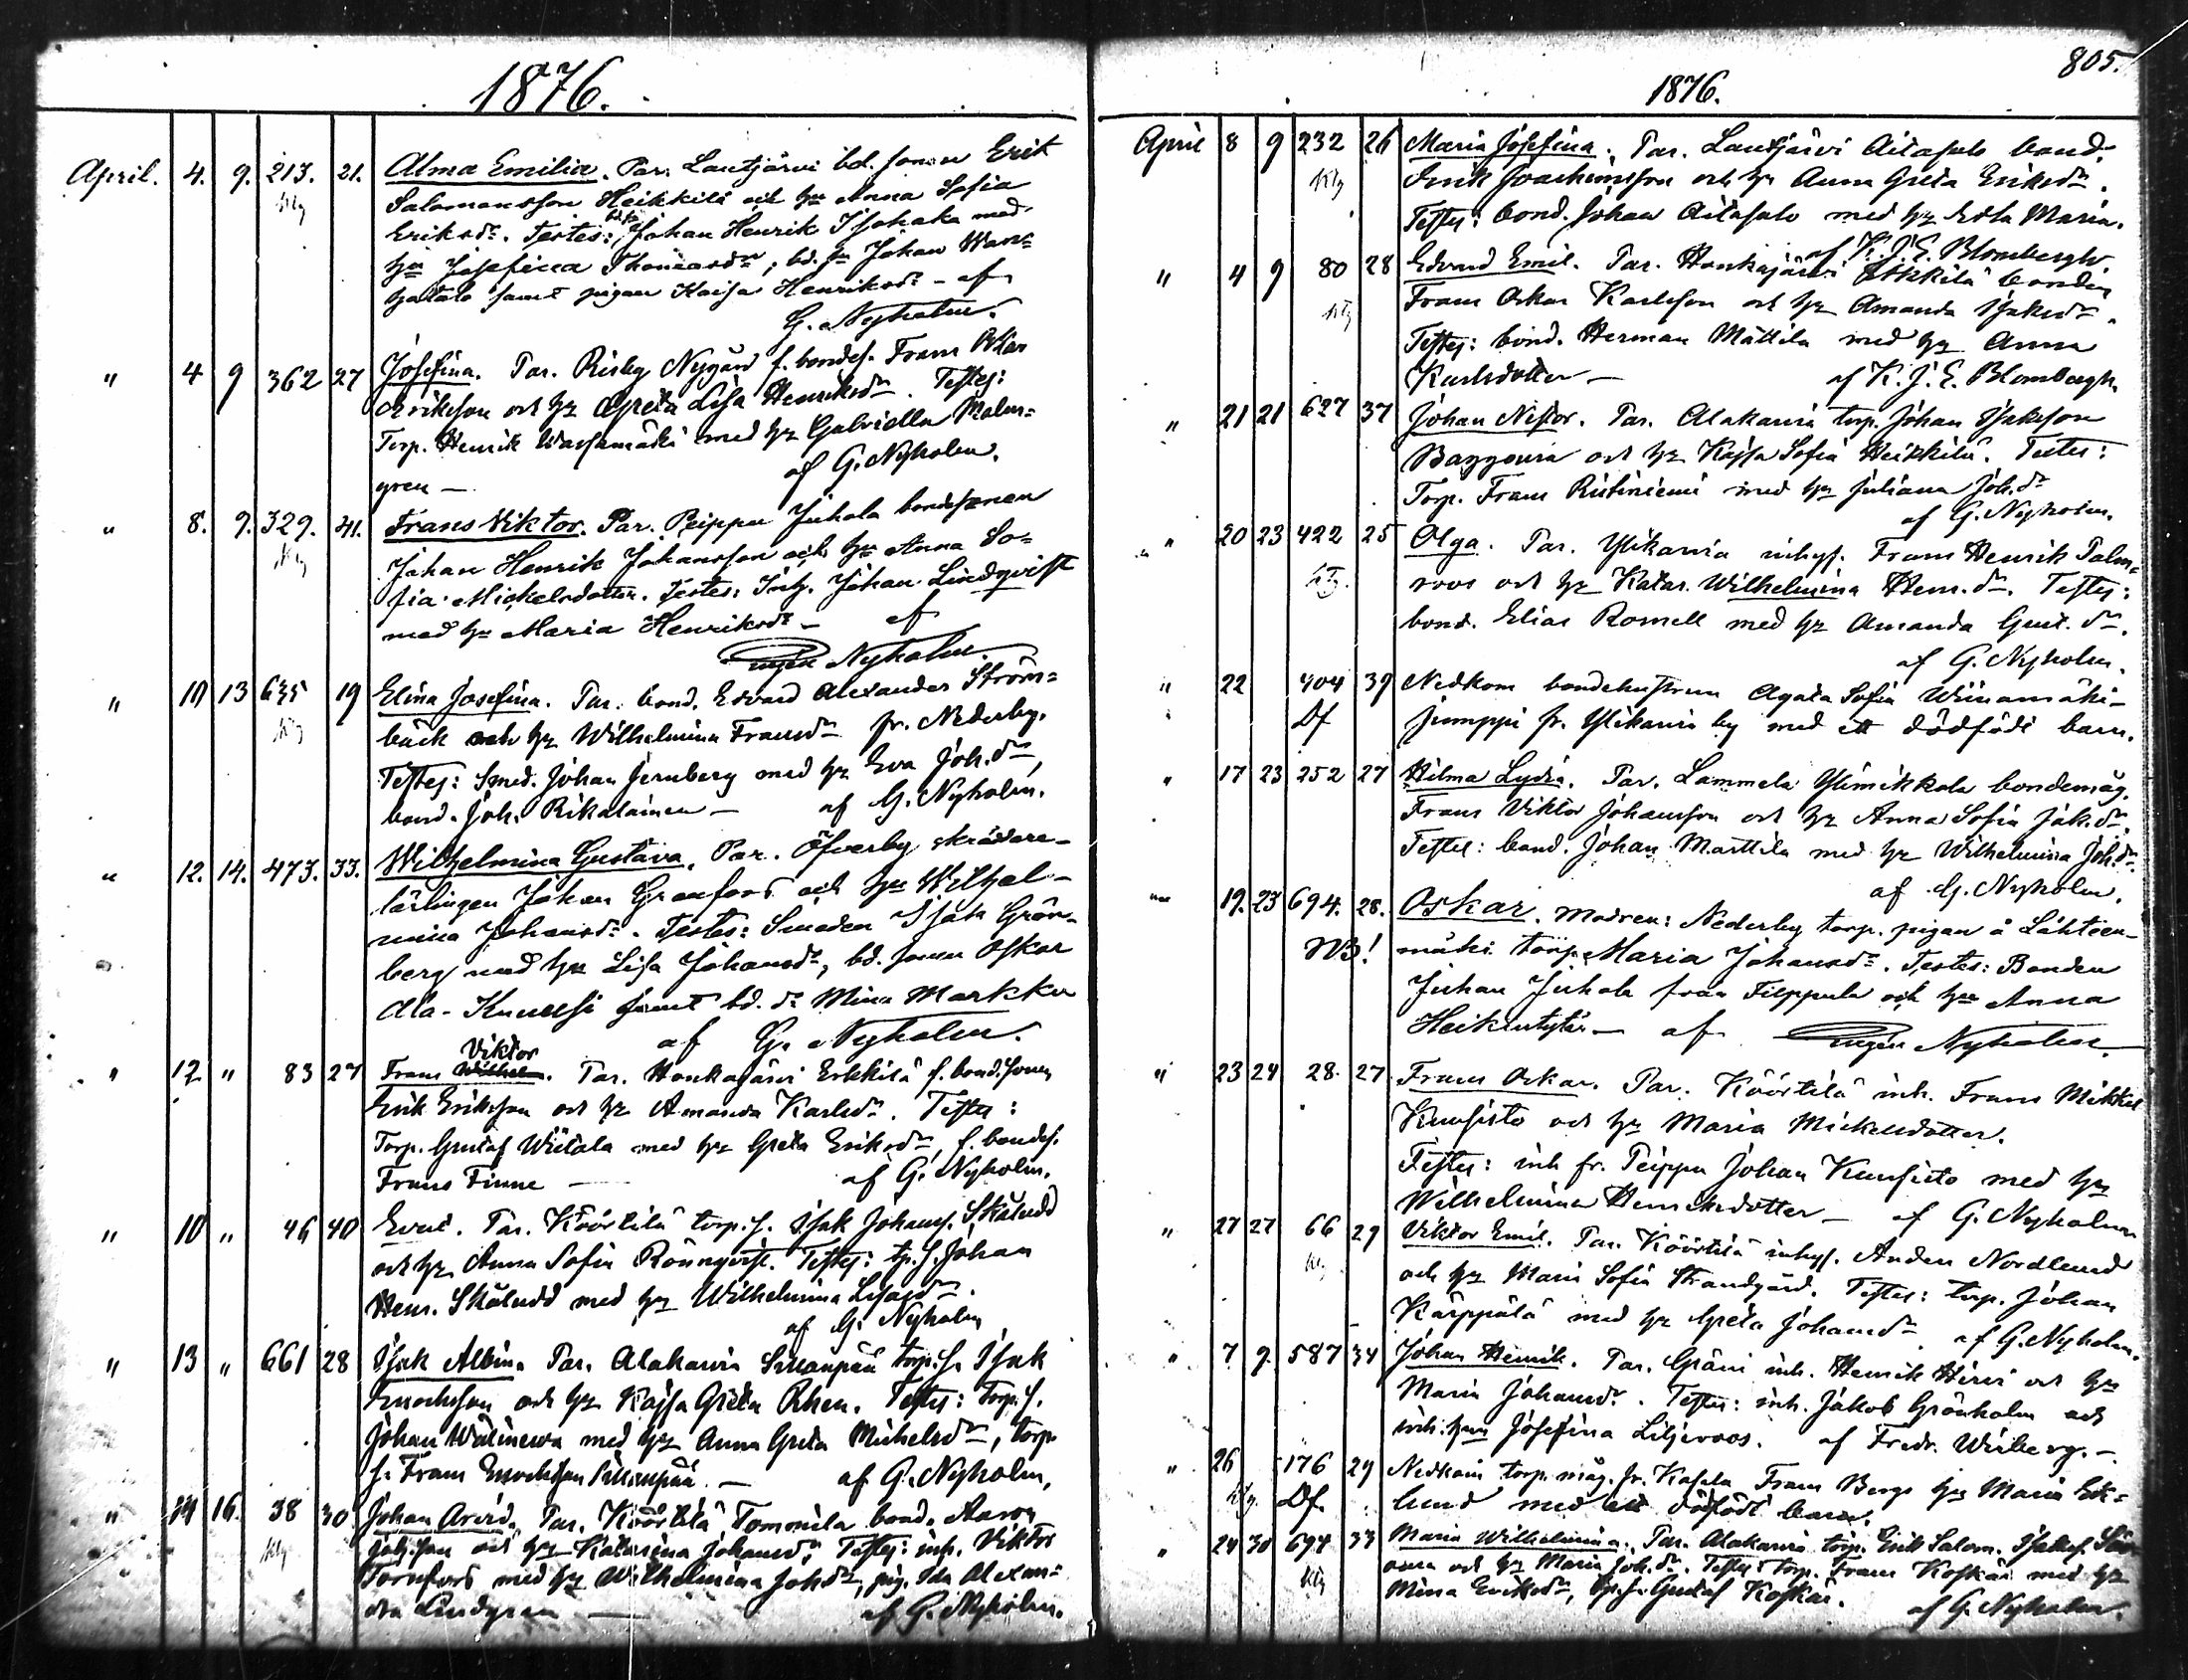 1876.
April. 4. 9. 213. 21. Alma Emilia. Par. Lautjärvi bd. sonen Erik
Salomonsson Heikkilä och hu Anna Sofia
Eriksdr. Testes: Johan Henrik Isohaka med
hu Josefina Thomasdr, bd. sn Johan Wan=
hatalo samt pigan Kaisa Henriksdr - af
G. Nyholm.
" 4 9 362 27 Josefina. Par. Risby Nygård f. bondes. Frans Oskar
Eriksson och hu Greta Lisa Henriksdr. Testes:
Torp. Henrik Wassamäki med hu Gabriella Malm=
gren — af G. Nyholm.
" 8. 9. 329. 41. Frans Viktor. Par. Peippu Juhola bondesonen
Johan Henrik Johansson och hu Anna So=
fia Mickelsdotter. Testes: Inh. Johan Lindqvist
med hu Maria Henriksdr - af
Nyholm.
" 10 13 635 19 Elina Josefina. Par. bond. Edvard Alexander Ström=
bäck och hu Wilhelmina Fransdr fr. Nederby.
Testes: Smed. Johan Jernberg med hu Eva Joh.dr,
bond. Joh. Rikalainen — af G. Nyholm.
" 12. 14. 473. 33. Wilhelmina Gustava. Par. Öfverby skrädare-
lärlingen Johan Granfors och hu Wilhel-
mina Johansdr. Testes: Smeden Isak Grön-
berg med hu Lisa Johansdr, bd. sonen Oskar
Ala-Knuussi samt bd. dr Mina Markku
af G. Nyholm.
" 12 " 83 27 Frans Wilhelm Viktor. Par. Honkajärvi Erkkilä f. bond.sonen
Erik Eriksson och hu Amanda Karlsdr. Testes:
Torp. Gustaf Wiitala med hu Greta Eriksdr, f. bondes.
Frans Finne — af G. Nyholm.
" 10 " 46 40 Evert. Par. Köörtilä torp.s. Isak Johans. Skäludd
och hu Anna Sofia Rönnqvist. Testes: tp.s. Johan
Henr. Skäludd med hu Wilhelmina
af G. Nyholm
" 13 " 661 28 Isak Albin. Par. Alakarvia Sillanpää torp.s. Isak
Enochsson och hu Kajsa Greta Rhen. Testes: Torp.s.
Johan Wälinewa med hu Anna Greta Michelsdr, torp.
s. Frans Enochsson Sillanpää. — af G. Nyholm.
" 14 16. 38 30 Johan Arvid. Par. Köörtilä Tommila bond. Aaron
och hu Katarina Johansdr. Testes: inh. Viktor
Tornfors med hu Wilhelmina Joh.dr, pig. Ida Alexan=
dra Lindgren — af G. Nyholm.
805.
1876.
April 8 9 232 26 Maria Josefina. Par. Lautjärvi Aitasalo bond.
Erik Joachimsson och hu Anna Greta Eriksdr.
Testes: bond. Johan Aitasalo med hu Edla Maria.
af K.J.E. Blombergh.
" 4 9 80 28 Edvard Emil. Par. Honkajärvi Erkkilä bonden
Frans Oskar Karlsson och hu Amanda Isaksdr.
Testes: bond. Herman Mattila med hu Anna
Karlsdotter — af K.J.E. Blombergh.
" 21 21 627 37 Johan Nestor. Par. Alakarvia torp. Johan Isaksson
och hu Kajsa Sofia Heikkilä. Testes:
Torp. Frans Riihiniemi med hu Juliana Joh.dr
af G. Nyholm.
" 20 23 422 25 Olga. Par. Ylikarvia inhys. Frans Henrik Palm=
roos och hu Katar. Wilhelmina Henr.dr. Testes:
bond. Elias Romell med hu Amanda Gust.dr.
af G. Nyholm.
" 22 404 39 Nedkom bondehustrun Agata Sofia Wiinamäki-
Df Jumppi fr. Ylikarvia by med ett dödfödt barn.
" 17 23 252 27 Hilma Lydia. Par. Lammela Ylimikkola bondemåg.
Frans Viktor Johansson och hu Anna Sofia Jak.dr.
Testes: bond. Johan Marttila med hu Wilhelmina Joh.dr.
af G. Nyholm.
" 19. 23 694. 28. Oskar. Modren: Nederby torp. pigan å Lähteen-
NB! mäki torp Maria Johansdr. Testes: Bonden
Juhan Juhola från Filppula och hu Anna
Heikintytär — af Nyholm.
" 23 24 28. 27 Frans Oskar. Par. Köörtilä inh. Frans Mikkel
Kuusisto och hu Maria Mickelsdotter.
Testes: inh. fr. Peippu Johan Kuusisto med hu
Wilhelmina Henriksdotter — af G. Nyholm
" 27 27 66 29 Viktor Emil. Par. Köörtilä inhys. Anders Nordlund
och hu Maria Sofia Strandgård. Testes: torp. Johan
Karppala med hu Greta Johansdr. af G. Nyholm.
" 7 9. 587 34 Johan Henrik. Par. Gräsi inh. Henrik Hirvi och hu
Maria Johansdr. Testes: inh. Jakob Grönholm och
inh. hu Josefina Liljeroos. af Fredr. Wiberg. -
" 26 176 29 Nedkom torp. måg. fr. Kasala Frans Bergs hu Maria Eck=
Df lund med ett dödfödt barn.
" 24 30 694 33 Maria Wilhelmina. Par. Alakarvia torp. Erik Salom. Isaks.
och hu Maria Joh.dr. Testes: torp. Frans Koskär med hu
Mina Eriksdr, tp.s. Gustaf Koskär. af G. Nyholm.